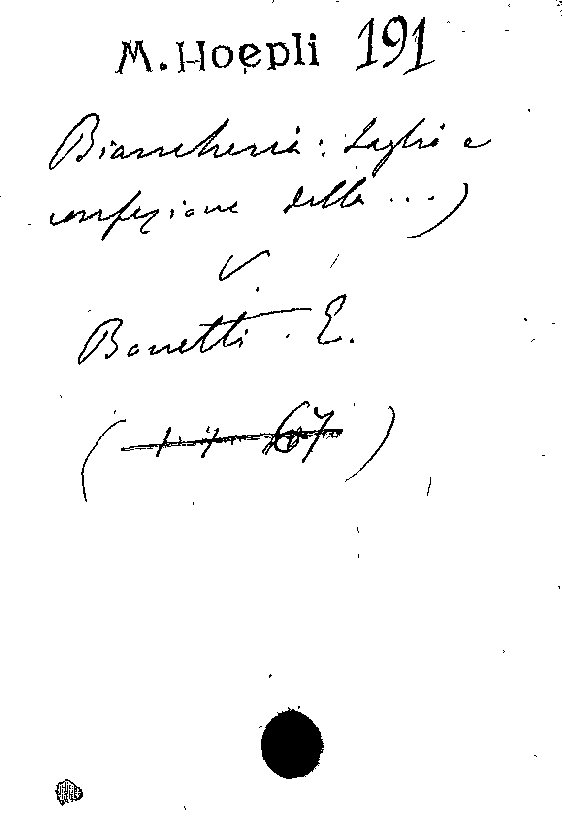 M. Hoepli 191
Biancheria: taglio e
confezione della ...)
V.
Bonetti. E.
( 67 )